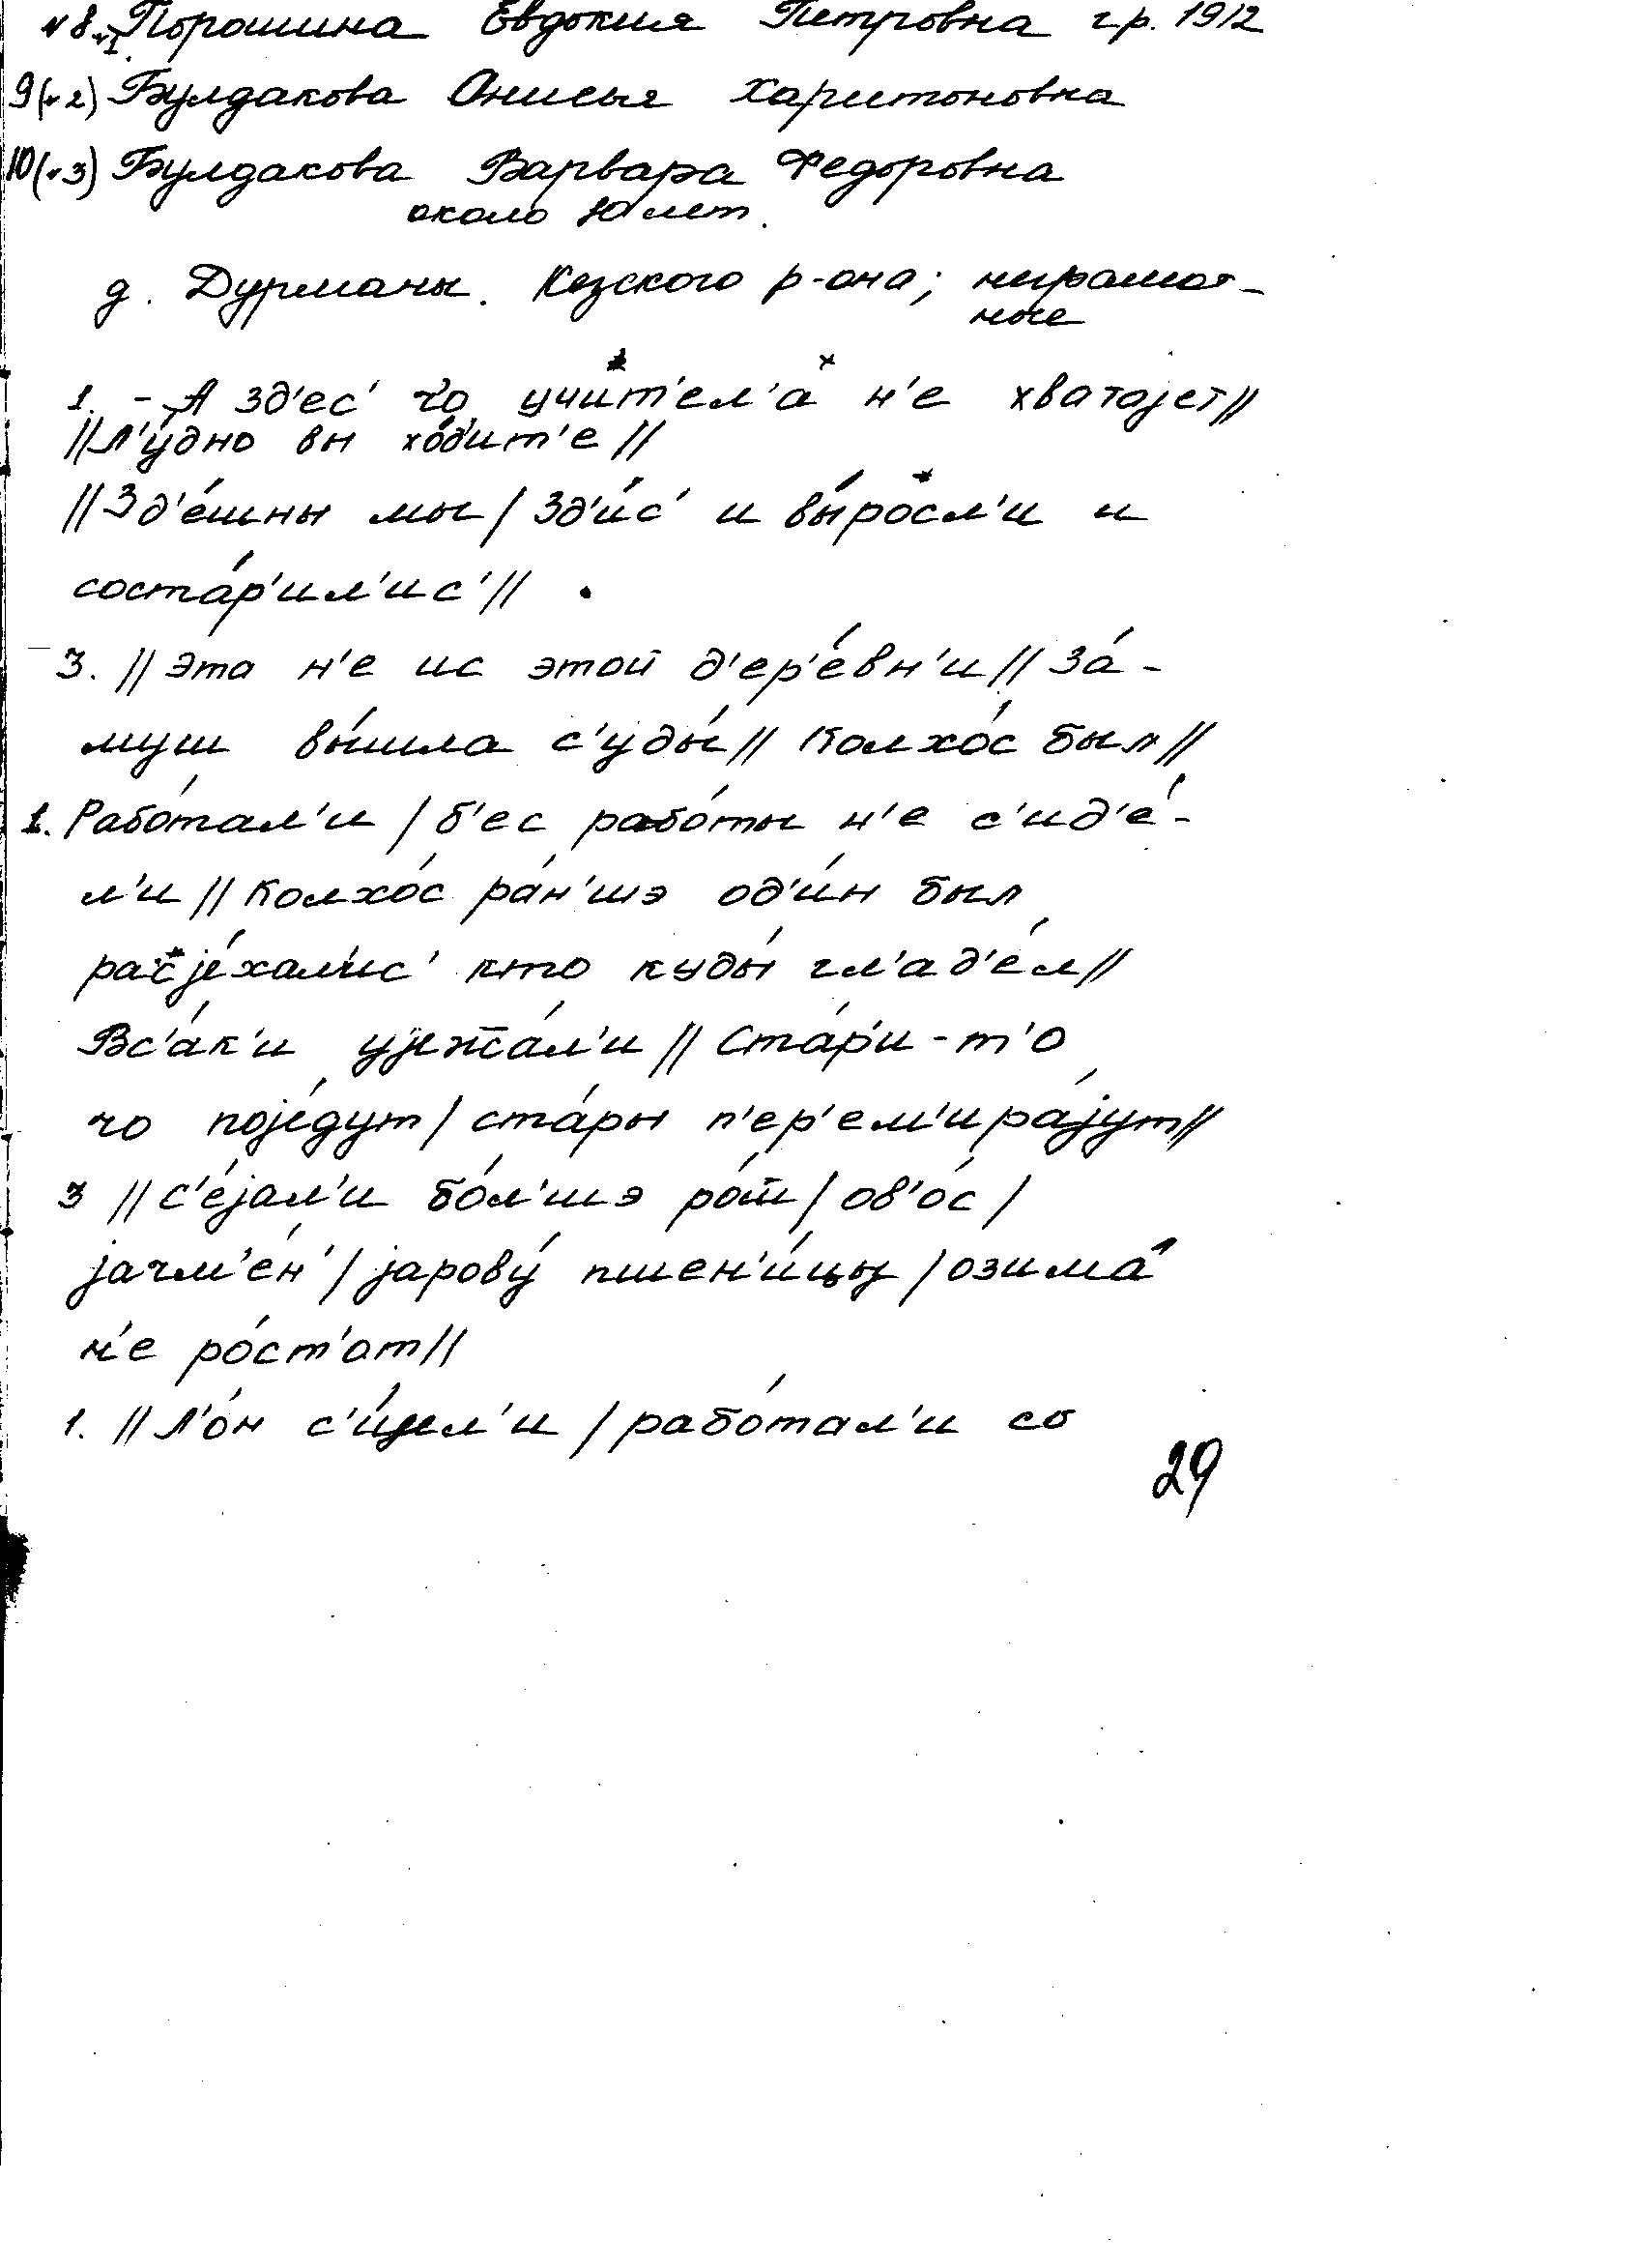 №8.№1. Порошина Евдокия Петровна г.р. 1912
9(№2) Булдакова Анисья Харитоновна
10(№3) Булдакова Варвара Федоровна
около 70 лет.
д. Дурманы. Кезского р-она; неграмот-
ные
1. - А зд'ес' чо учи́т'ел'а н'е хватајет//
//Л'у́дно вы хо́дит'е//
//Зд'е́шны мы/ Зд'и́с' и вы́росл'и и
соста́р'ил'ис'//
3. // Эта н'е ис этой д'ер'е́вн'и// За́-
муш вы́шла с'уды́// Колхо́с был//
1. Рабо́тал'и / б'ес рабо́ты н'е с'ид'е́-
л'и // Колхо́с ра́н'шэ од'и́н был
расје́хал'ис' кто куды́ гл'ад'е́л//
Вс'а́к'и ујежа́л'и // Ста́р'и-т'о
чо поје́дут/ ста́ры п'ер'ем'ира́јут//
3 // С'е́јал'и бо́л'шэ ро́ш/ ов'о́с/
јачм'е́н' / јарову́ пшен'и́цы / озима́
н'е ро́ст'от//
1. // Л'о́н с'и́јел'и / рабо́тал'и со
29